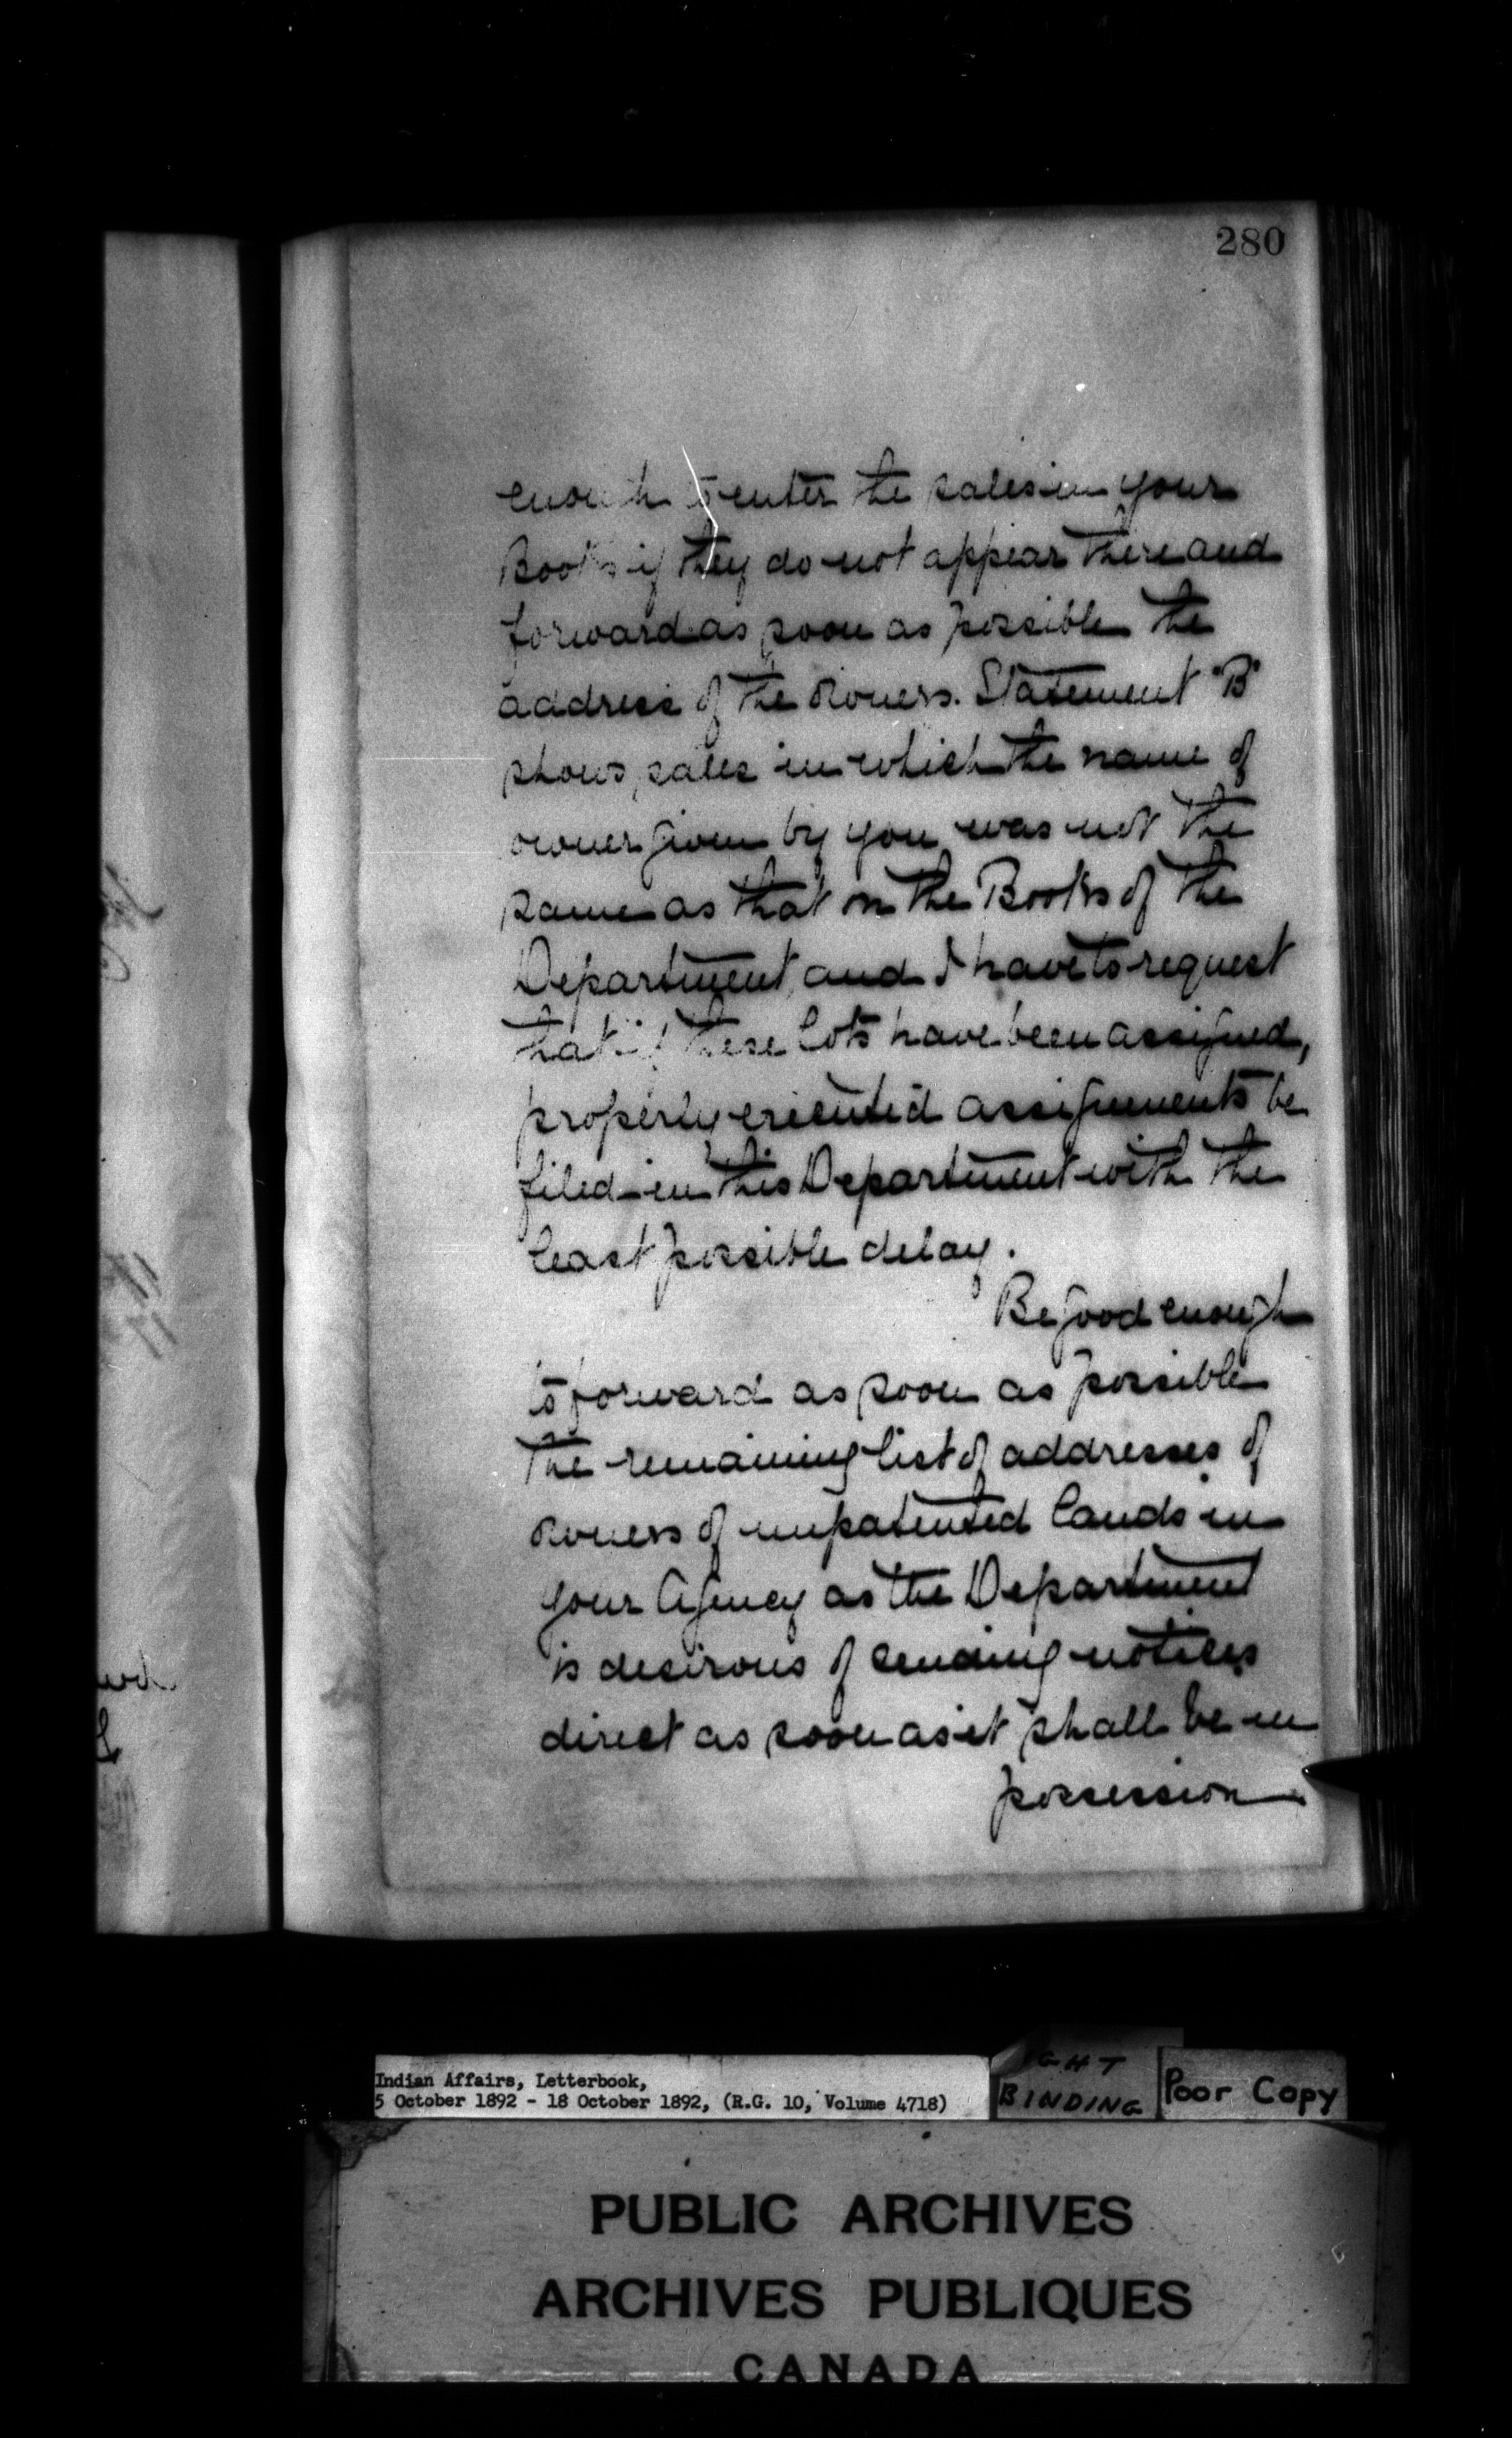 280
enough to enter the sales in your
Books if they do not appear there and
forward as soon as possible the
address of the owners. Statement "B"
shows sales in which the name of
owner given by you was not the
same as that on the Books of the
Department, and I have to request
that if these lots have been assigned,
properly executed assignments be
filed in this Department with the
least possible delay.
Be good enough
to forward as soon as possible
the remaining list of addresses of
owners of unpatented lands in
your Agency as the Department
is desirous of sending notices
direct as soon as it shall be in
possession
Indian Affairs, Letterbook,
5 October 1892 - 18 October 1892, (R.G. 10, Volume 4718)
BINDING
Poor Copy
PUBLIC ARCHIVES
ARCHIVES PUBLIQUES
CANADA